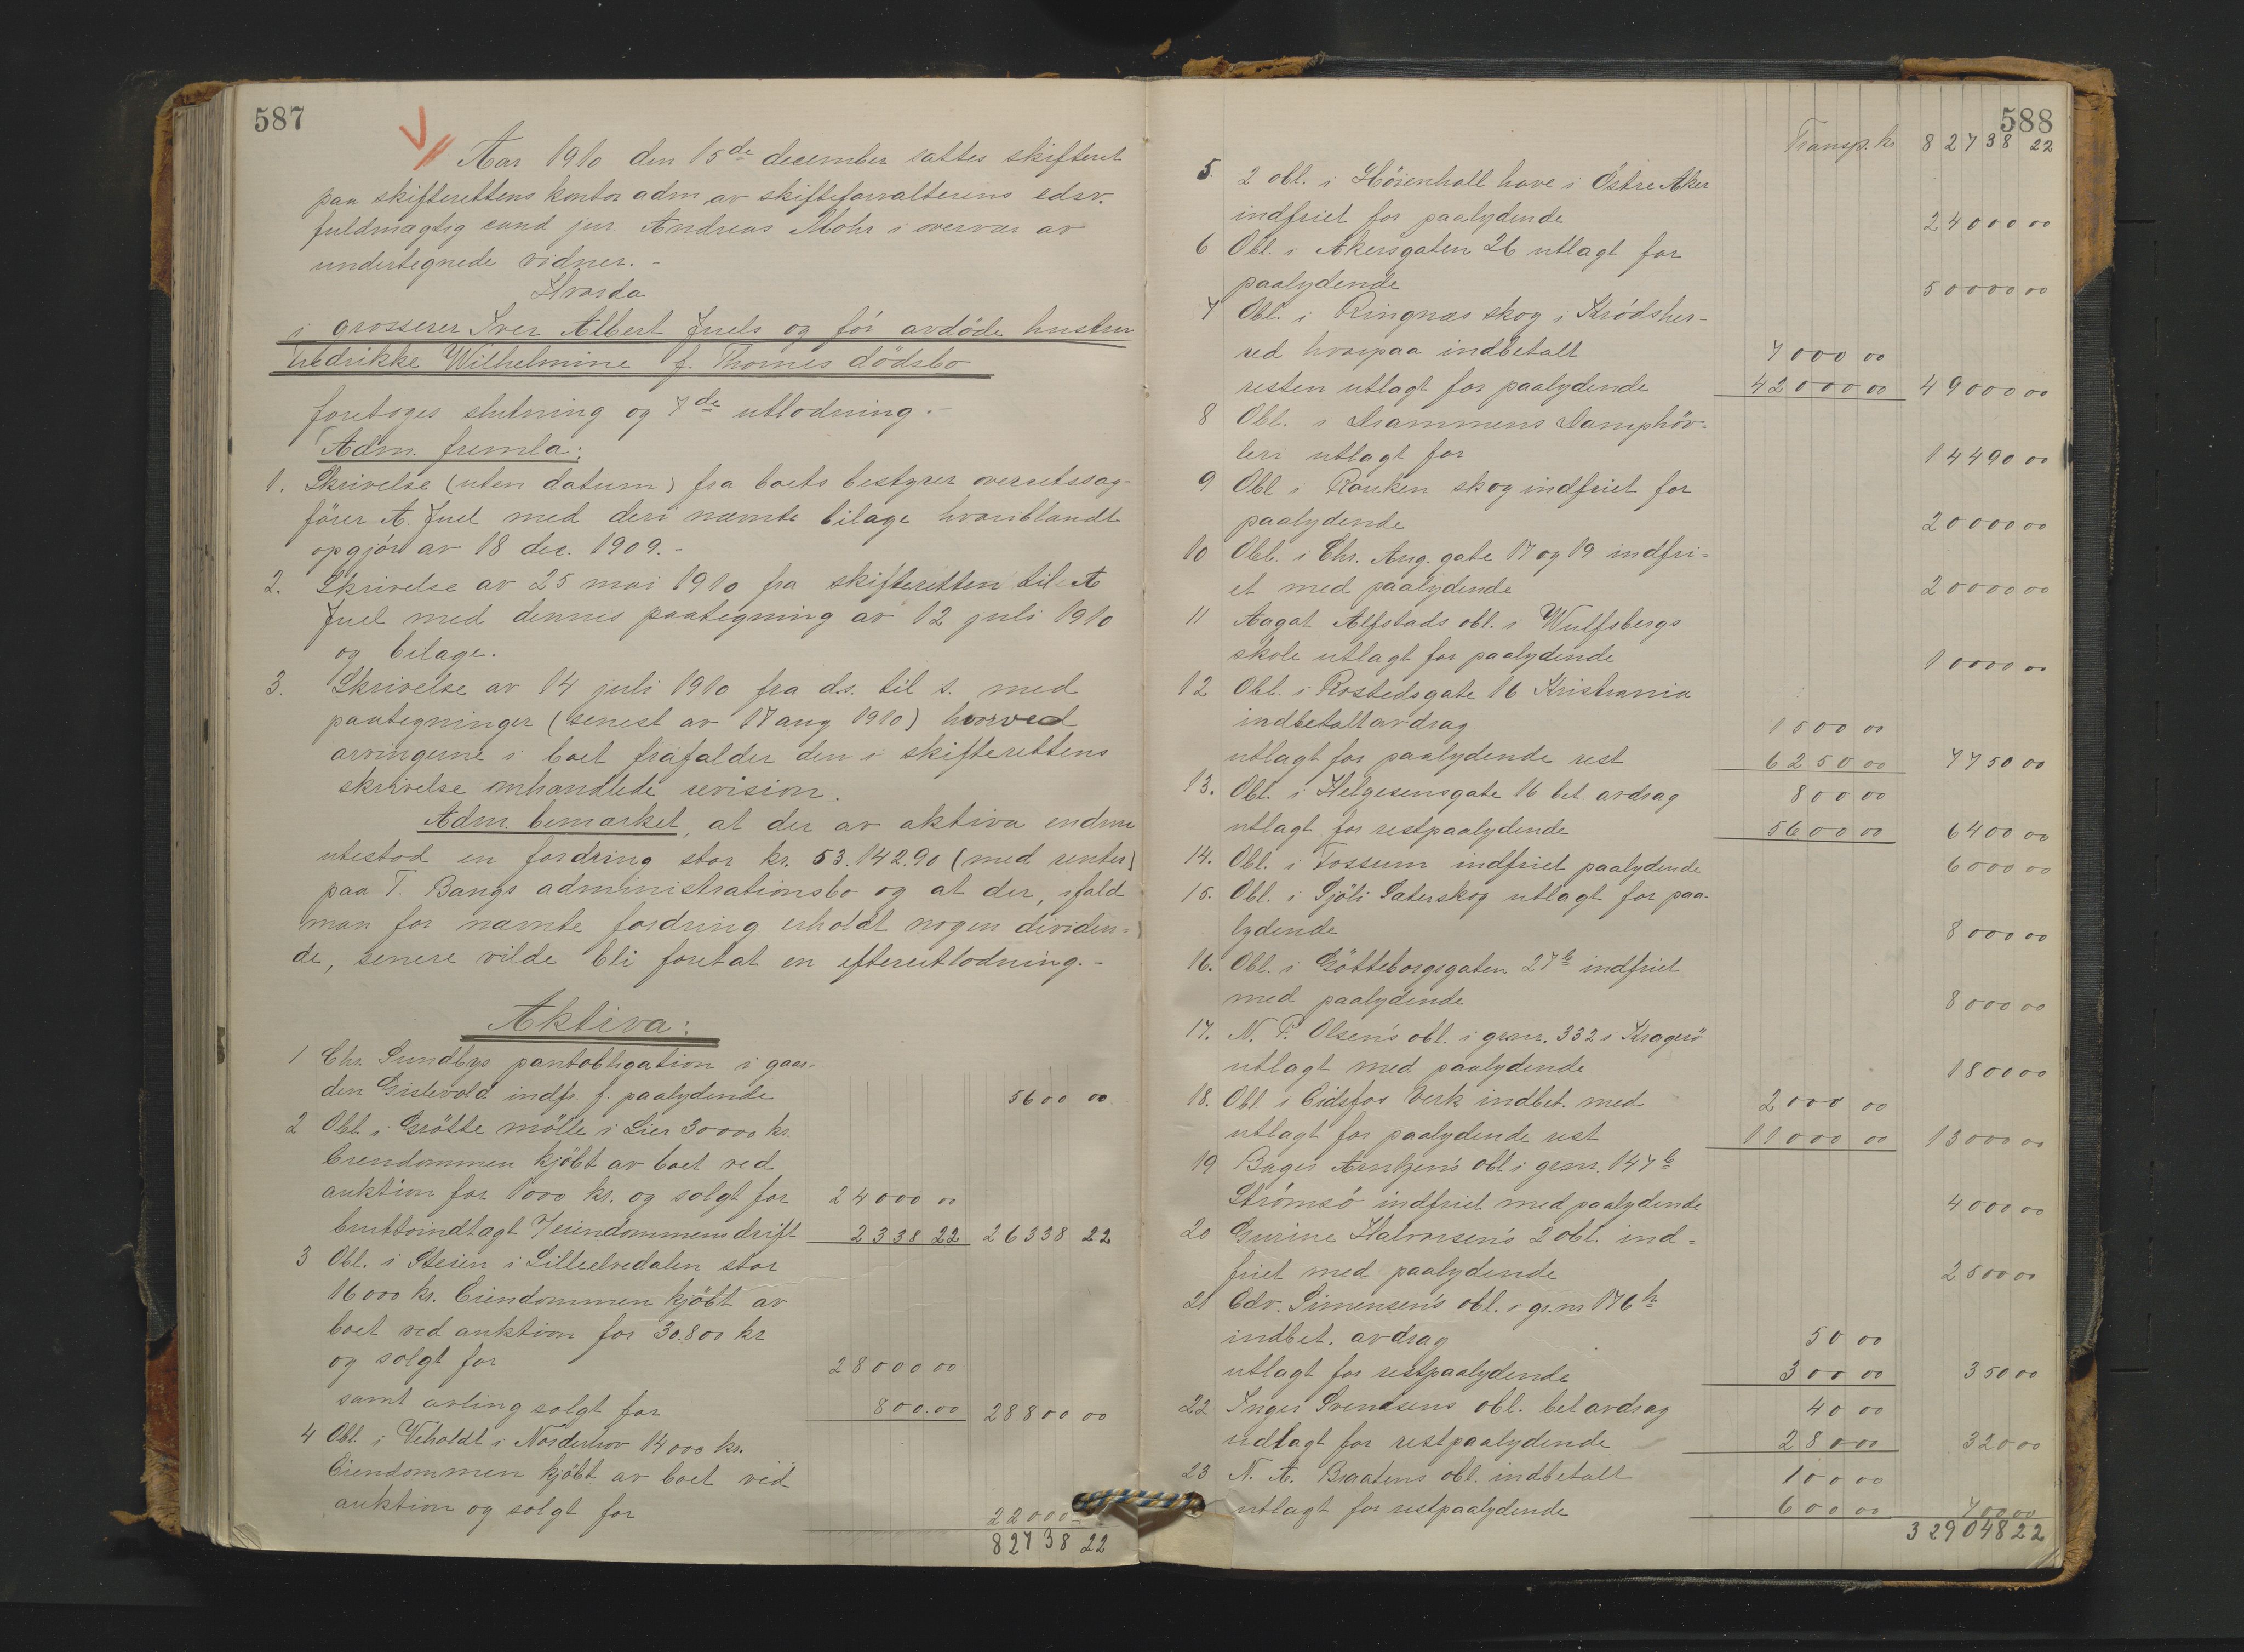 587
Aar 1910 den 15de december sattes skifteret
paa skifterettens kontor adm. av skifteforvalterens edsv.
fuldmægtig cand jur. Andreas Mohr i overvær av
undertegnede vidner. -
Hvorda
i grosserer Iver Albert Juels og før avdøde hustru
Fredrikke Wilhelmine f. Thornes dødsbo
foretoges slutning og 7de utlodning. -
Adm. fremla:
1. Skrivelse (uten datum) fra boets bestyrer overretssag-
fører A. Juel med deri nævnte bilage hvoriblandt
opgjør av 18 dec. 1909. -
2. Skrivelse av 25 mai 1910 fra skifteretten til A
Juel med dennes paategning av 12 juli 1910
og bilage.
3. Skrivelse av 14 juli 1910 fra ds. til s. med
paategninger (senest av 17 aug 1910) hvorved
arvingerne i boet frafalder den i skifterettens
skrivelse omhandlede revision.
Adm. bemærket, at der av aktiva endnu
utestod en fordring stor kr. 53.142.90 (med renter)
paa T. Bangs administrationsbo og at der, ifald
man for nævnte fordring erholdt nogen dividen=
de, senere vilde bli foretat en efterutlodning. -
Aktiva:
1 Chr. Sundbys pantobligation i gaar-
den Gislevold indfr. f. paalydende 5600 00
2 Obl. i Grøtte mølle i Lier 30000 kr.
Eiendommen kjøbt av boet ved
auktion for 1000 kr. og solgt for 24000 00
bruttoindtægt v/eiendommens drift 2338 22 26338 22
3 Obl. i Steien i Lilleelvedalen stor
16000 kr. Eiendommen kjøbt av
boet ved auktion for 30.800 kr
og solgt for 28000 00
samt avling solgt for 800.00 28800 00
4 Obl. i Veholdt i Norderhov 14000 kr.
Eiendommen kjøbt av boet ved
auktion og solgt for 22000
82738 22
588
Transp. kr 82738 22
5. 2 obl. i Høienhall have i Østre Aker
indfriet for paalydende 24000 00
6 Obl. i Akersgaten 26 utlagt for
paalydende 50000 00
7 Obl. i Ringnæs skog i Krødsher-
red hvorpaa indbetalt 7000 00
resten utlagt for paalydende 42000 00 49000 00
8 Obl. i Drammens Damphøv-
leri utlagt for 14490 00
9 Obl i Rauken skog indfriet for
paalydende 20000 00
10 Obl. i Chr. Aug. gate 17 og 19 indfri=
et med paalydende 20000 00
11 Aagat Alfstads obl. i Wulfsbergs
skole utlagt for paalydende 10000 00
12 Obl. i Rostedsgate 16 Kristiania
indbetalt avdrag 1500 00
utlagt for paalydende rest 6250 00 7750 00
13. Obl. i Helgesensgate 16 bet. avdrag 800 00
utlagt for restpaalydende 5600 00 6400 00
14. Obl. i Fossum indfriet paalydende 6000 00
15. Obl. i Gjøli Sæterskog utlagt for paa-
lydende 8000 00
16. Obl. i Gøtteborgsgaten 27b indfriet
med paalydende 8000 00
17. N. P. Olsen's obl. i grnr. 332 i Kragerø
utlagt med paalydende 1800 00
18. Obl. i Eidsfos Verk indbet. med 2000 00
utlagt for paalydende rest 11000 00 13000 00
19 Bager Arntzen's obl i grnr. 147b
Strømsø indfriet med paalydende 4000 00
20 Gurine Halvorsen's 2 obl. ind=
friet med paalydende 2500 00
21 Edv. Simensen's obl. i gr.nr 176b
indbet. avdrag 50 00
utlagt for restpaalydende 300 00 350 00
22 Inger Svendsens obl. bet avdrag 40 00
udlagt for restpaalydende 280 00 320 00
23 N. A. Braatens obl. indbetalt 100 00
utlagt for restpaalydende 600 00 700 00
329048 22